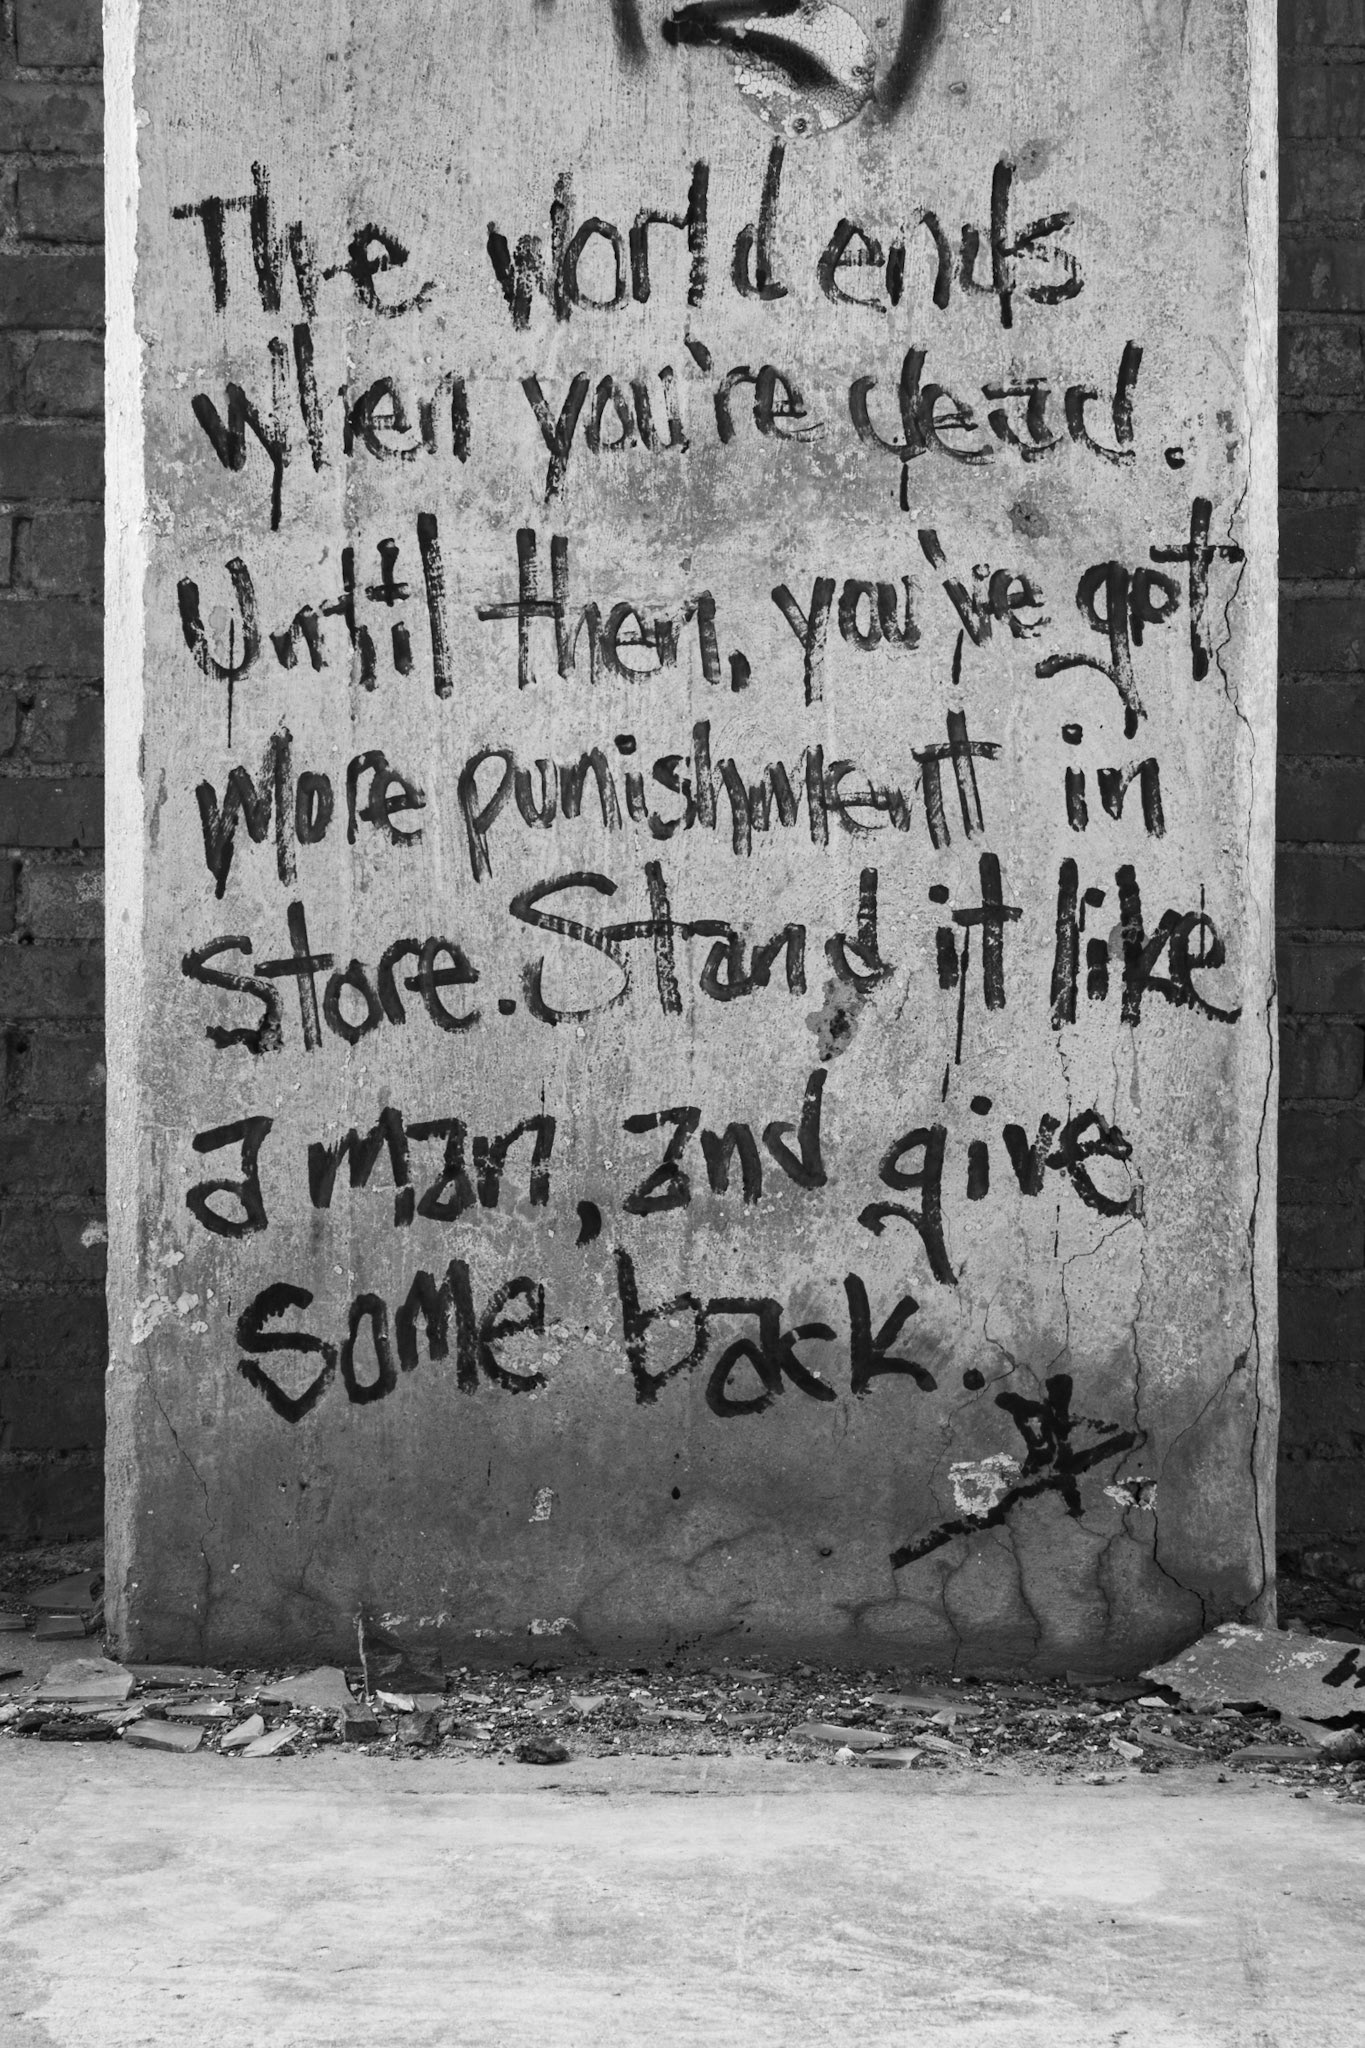 The world ends
when you're dead.
Until then, you've got
more punishment in
store. Stand it like
a man, and give
some back.